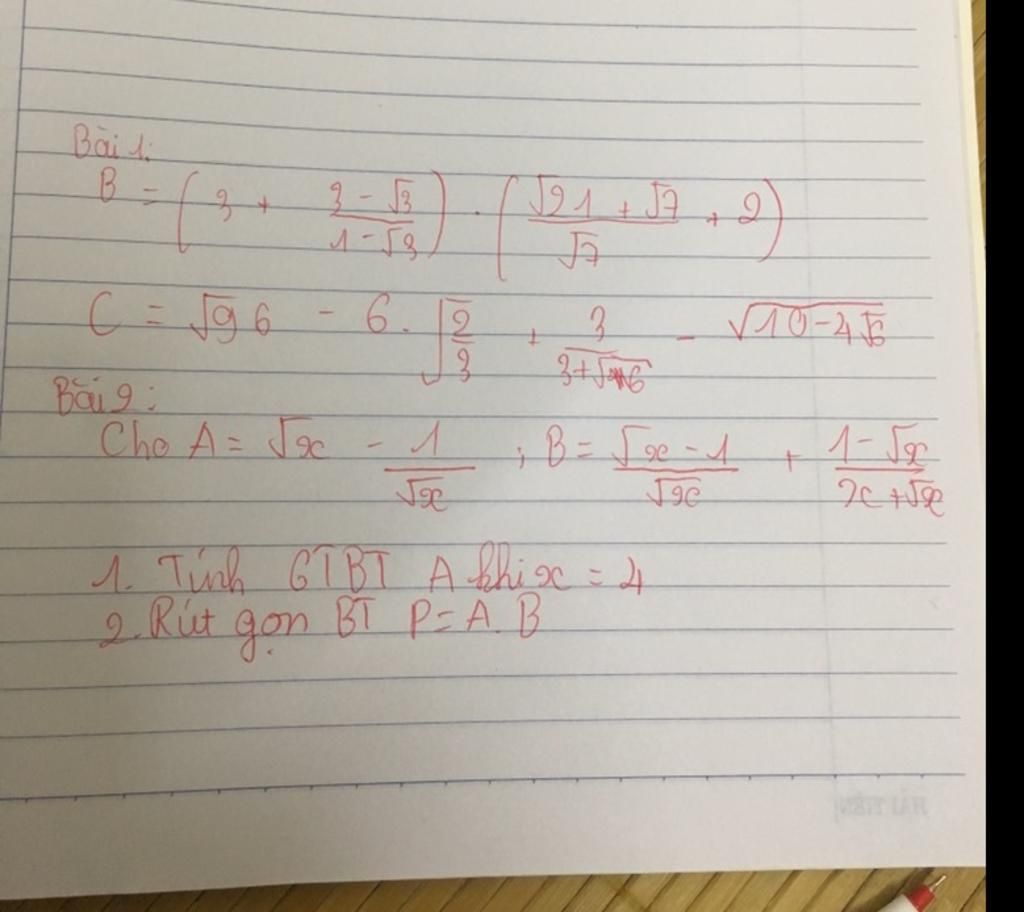 Bài 1:
B = (3 + (3 - √3)/(1 - √3)) . ((√21 + √7)/√7 + 2)
C = √96 - 6. √(2/3) + 3/(3+√6) - √(10-4√6)
Bài 2:
Cho A = √x - 1/√x ; B = (√x - 1)/√x + (1 - √x)/(x + √x)
1. Tính GTBT A khi x = 4
2. Rút gọn BT P = A.B